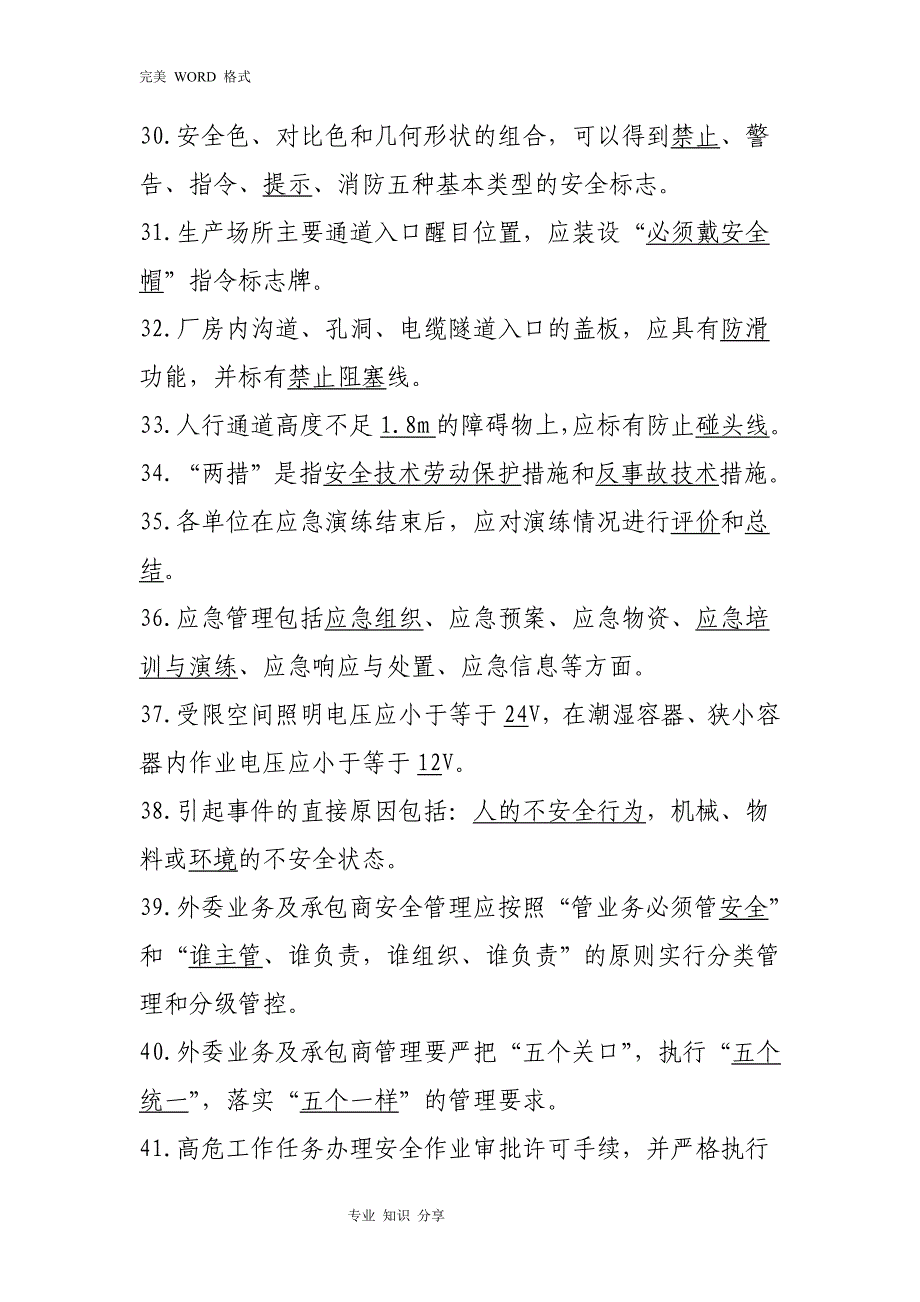 完美 WORD 格式
30.安全色、对比色和几何形状的组合，可以得到禁止、警
告、指令、提示、消防五种基本类型的安全标志。
31.生产场所主要通道入口醒目位置，应装设“必须戴安全
帽”指令标志牌。
32.厂房内沟道、孔洞、电缆隧道入口的盖板，应具有防滑
功能，并标有禁止阻塞线。
33.人行通道高度不足1.8m的障碍物上,应标有防止碰头线。
34.“两措”是指安全技术劳动保护措施和反事故技术措施。
35.各单位在应急演练结束后，应对演练情况进行评价和总
结。
36.应急管理包括应急组织、应急预案、应急物资、应急培
训与演练、应急响应与处置、应急信息等方面。
37.受限空间照明电压应小于等于24V，在潮湿容器、狭小容
器内作业电压应小于等于12V。
38.引起事件的直接原因包括：人的不安全行为，机械、物
料或环境的不安全状态。
39.外委业务及承包商安全管理应按照“管业务必须管安全”
和“谁主管、谁负责，谁组织、谁负责”的原则实行分类管
理和分级管控。
40.外委业务及承包商管理要严把“五个关口”，执行“五个
统一”，落实“五个一样”的管理要求。
41.高危工作任务办理安全作业审批许可手续，并严格执行
专业 知识 分享